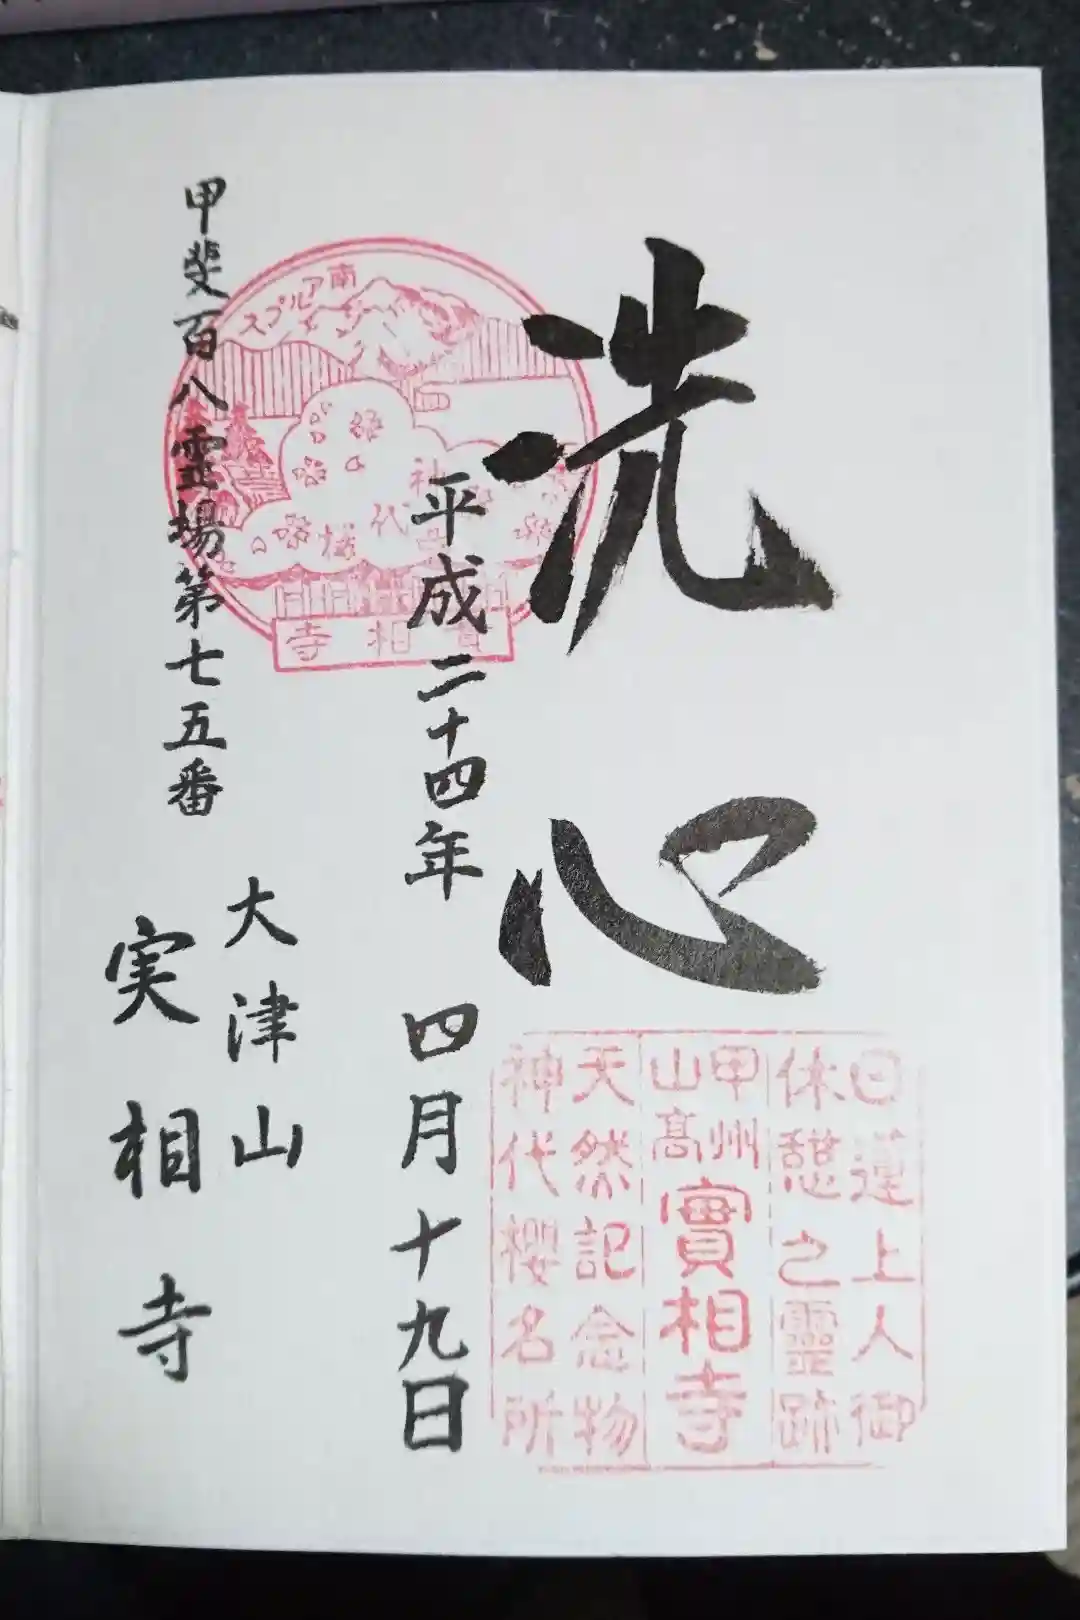 洗心
日蓮上人御
休憩之霊跡
甲州
山高
實相寺
天然記念物
神代櫻名所
平成二十四年 四月十九日
南アルプス
神代桜
實相寺
大津山
実相寺
甲斐百八霊場第七五番